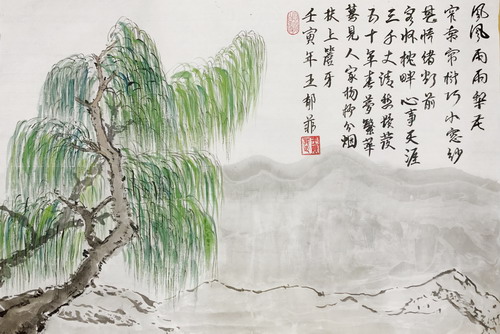 風風雨雨梨花
窄索帘栊巧小窓紗
甚情绪灯前
客怀枕畔心事天涯
三千丈清愁鬓發
五十年春夢繁華
蓦見人家杨柳分烟
扶上簷牙
壬寅年王郁菲